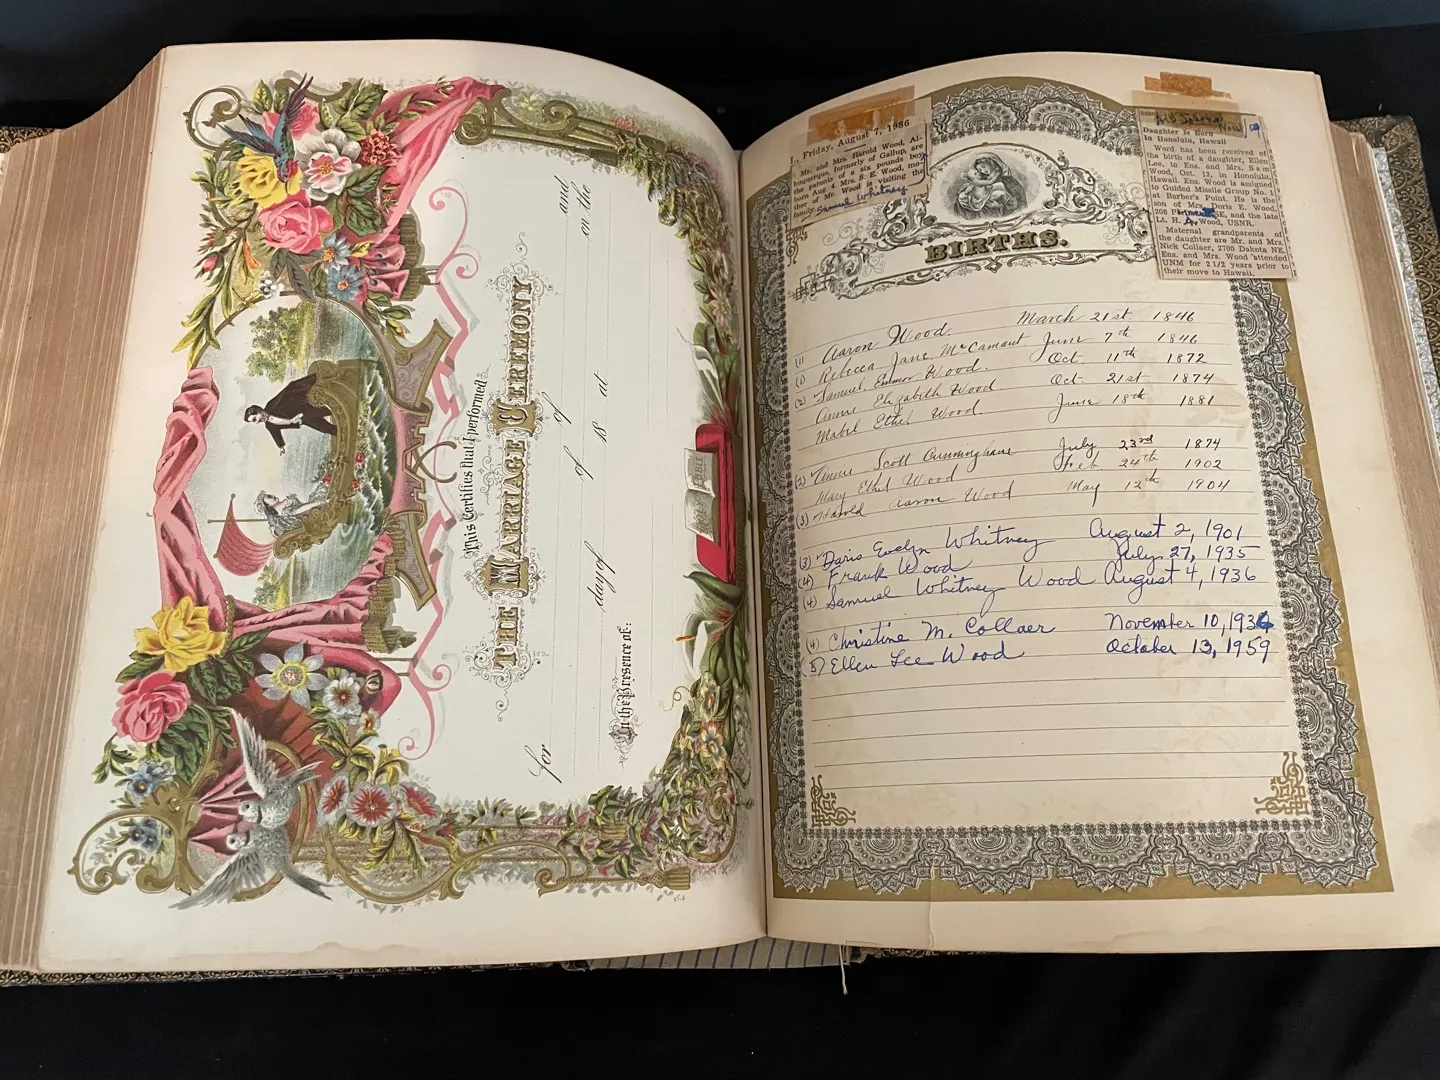 This Certifies that I performed
THE MARRIAGE CEREMONY
for and
of of on the
day of 18 at
In the Presence of:
BIBLE
I., Friday, August 7, 1986
Mr. and Mrs. Harold Wood, Al-
buquerque, formerly of Gallup, are
the parents of a six pounds boy
born Aug. 4. Mrs. S. E. Wood, mo-
ther of Mr. Wood is visiting the
family. Samuel Whitney
Daughter Is Born
In Honolulu, Hawaii
Word has been received of
the birth of a daughter, Ellen
Lee, to Ens. and Mrs. Sam
Wood, Oct. 13, in Honolulu,
Hawaii. Ens. Wood is assigned
to Guided Missile Group No. 1
at Barber's Point. He is the
son of Mrs. Doris E. Wood,
206 SE, and the late
Lt. H. A. Wood, USNR.
Maternal grandparents of
the daughter are Mr. and Mrs.
Nick Collaer, 2700 Dakota NE.
Ens. and Mrs. Wood attended
UNM for 2 1/2 years prior to
their move to Hawaii.
BIRTHS.
(1) Aaron Wood. March 21st 1846
(1) Rebecca Jane McCamant June 7th 1846
(2) Samuel Emmor Wood. Oct. 11th 1872
Annie Elizabeth Wood Oct. 21st 1874
Mabel Ethel Wood. June 18th 1881
(2) Annie Scott Cunninghame July 23rd 1874
Mary Ethel Wood Feb 24th 1902
(3) Harold Aaron Wood May 12th 1904
(3) Doris Evelyn Whitney August 2, 1901
(4) Frank Wood July 27, 1935
(4) Samuel Whitney Wood August 4, 1936
(4) Christine M. Collaer November 10, 1936
(5) Ellen Lee Wood October 13, 1959